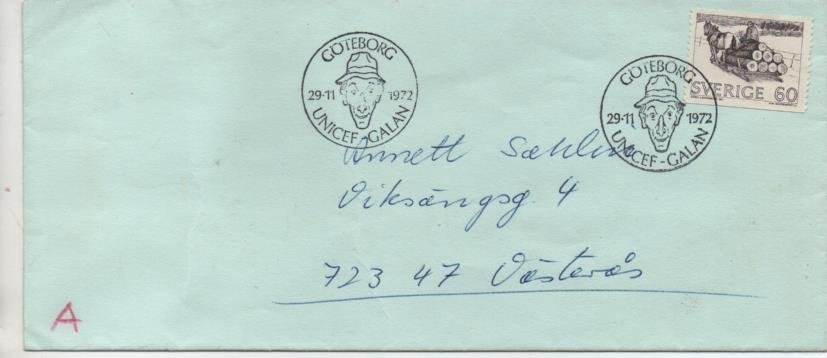 GÖTEBORG
29-11 1972
UNICEF-GALAN
GÖTEBORG
29-11 1972
UNICEF-GALAN
SVERIGE 60
Annett
Viksängsg. 4
723 47 Västerås
A